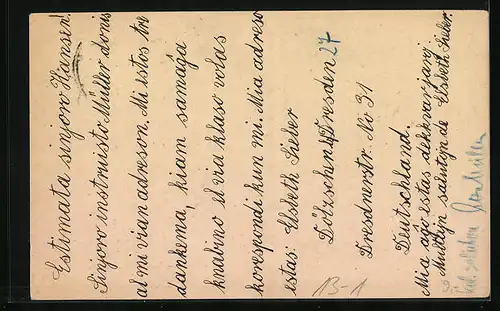 Estimata sinjoro Hansen!
Sinjoro instruisto Müller donis
al mi vian adreson. Mi estos tre
dankema, kiam samaĝa
knabino el via klaso volas
korespondi kun mi. Mia adreso
estas: Elsbeth Lieler
Dölzschen/Dresden 27
Dresdnerstr. No 31
Deutschland
Mia aĝo estas dekkvar jaroj
Multajn salutojn de Elsbeth Lieler.
13-1